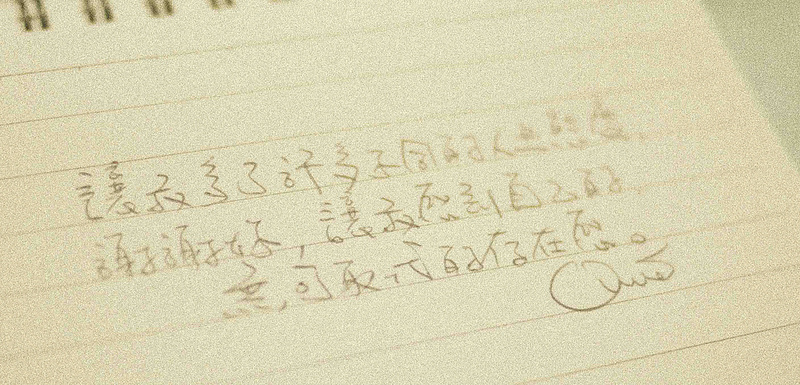 讓我多了許多不同的人生態度,
謝謝妳,讓我感到自己的
無可取代的存在感。